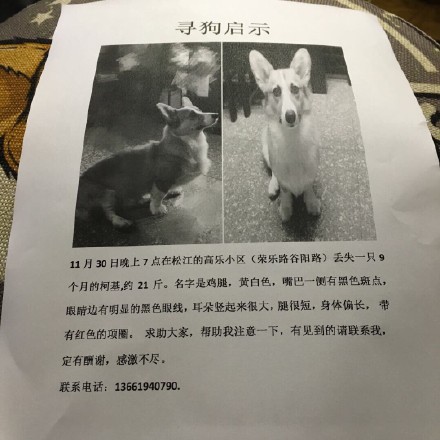 寻狗启示
11月30日晚上7点在松江的高乐小区（荣乐路谷阳路）丢失一只9
个月的柯基,约 21 斤。名字是鸡腿，黄白色，嘴巴一侧有黑色斑点，
眼睛边有明显的黑色眼线，耳朵竖起来很大，腿很短，身体偏长， 带
有红色的项圈。 求助大家，帮助我注意一下，有见到的请联系我，
定有酬谢，感激不尽。
联系电话：13661940790.